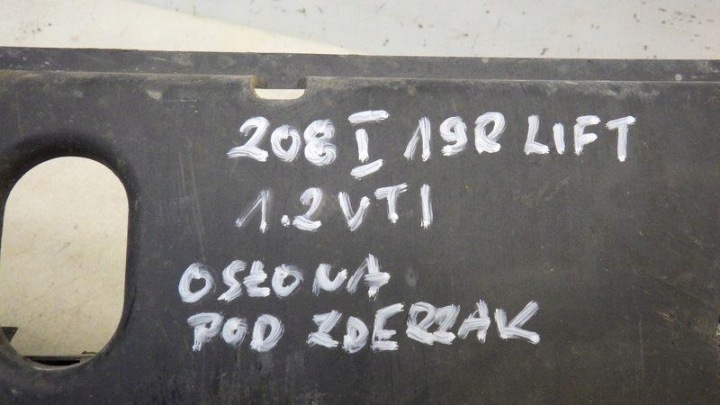 208 I 19R LIFT
1.2 VTI
OSŁONA
POD ZDERZAK